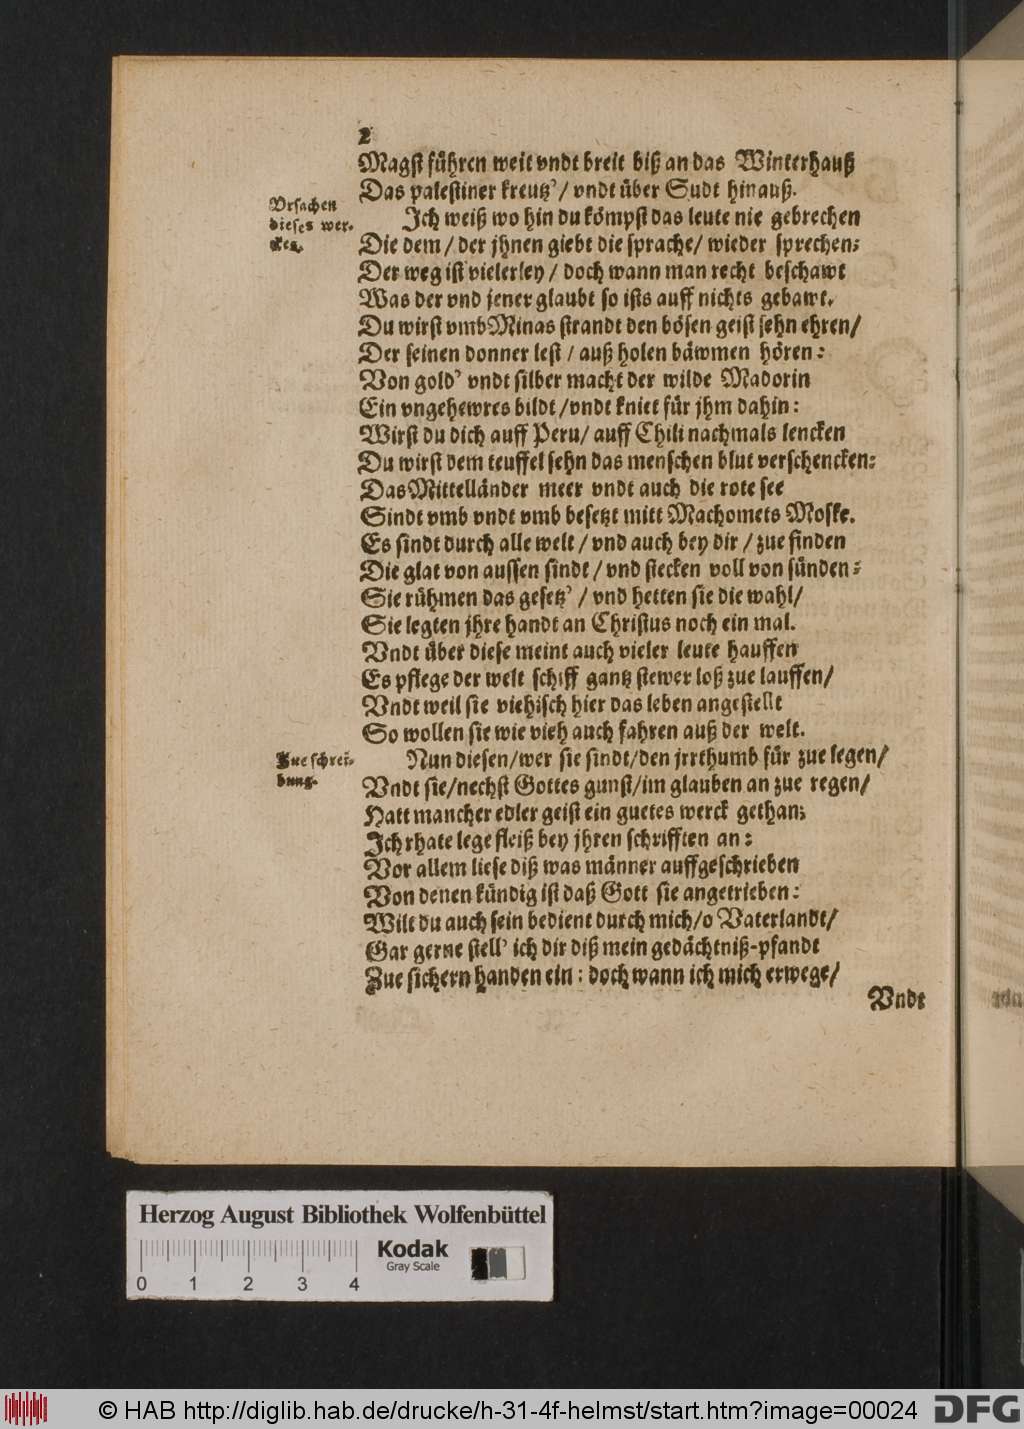 2
Magst führen weit vndt breit biß an das Winterhauß
Das palestiner kreutz’/ vndt über Sudt hinauß.
Vrsachen
dieses wer-
ckes.
Ich weiß wo hin du kömpst das leute nie gebrechen
Die dem / der jhnen giebt die sprache/ wieder sprechen;
Der weg ist vielerley / doch wann man recht beschawt
Was der vnd jener glaubt so ists auff nichts gebawt.
Du wirst vmb Minas strandt den bösen geist sehn ehren/
Der seinen donner lest / auß holen bäwmen hören:
Von gold’ vndt silber macht der wilde Madorin
Ein vngehewres bildt /vndt kniet für jhm dahin:
Wirst du dich auff Peru/ auff Chili nachmals lencken
Du wirst dem teuffel sehn das menschen blut verschencken:
Das Mittelländer meer vndt auch die rote see
Sindt vmb vndt vmb besetzt mitt Machomets Moske.
Es sindt durch alle welt / vnd auch bey dir / zue finden
Die glat von aussen sindt / vnd stecken voll von sünden:
Sie rühmen das gesetz’ / vnd hetten sie die wahl/
Sie legten jhre handt an Christus noch ein mal.
Vndt über diese meint auch vieler leute hauffen
Es pflege der welt schiff gantz stewer loß zue lauffen/
Vndt weil sie viehisch hier das leben angestellt
So wollen sie wie vieh auch fahren auß der welt.
Zue schrei-
bung.
Nun diesen/wer sie sindt/den jrrthumb für zue legen/
Vndt sie/nechst Gottes gunst/im glauben an zue regen/
Hatt mancher edler geist ein guetes werck gethan;
Ich rhate lege fleiß bey jhren schrifften an:
Vor allem liese diß was männer auffgeschrieben
Von denen kündig ist daß Gott sie angetrieben:
Wilt du auch sein bedient durch mich/o Vaterlandt/
Gar gerne stell’ ich dir diß mein gedächtniß-pfandt
Zue sichern handen ein: doch wann ich mich erwege/
Vndt
Herzog August Bibliothek Wolfenbüttel
Kodak
Gray Scale
0 1 2 3 4
© HAB http://diglib.hab.de/drucke/h-31-4f-helmst/start.htm?image=00024
DFG